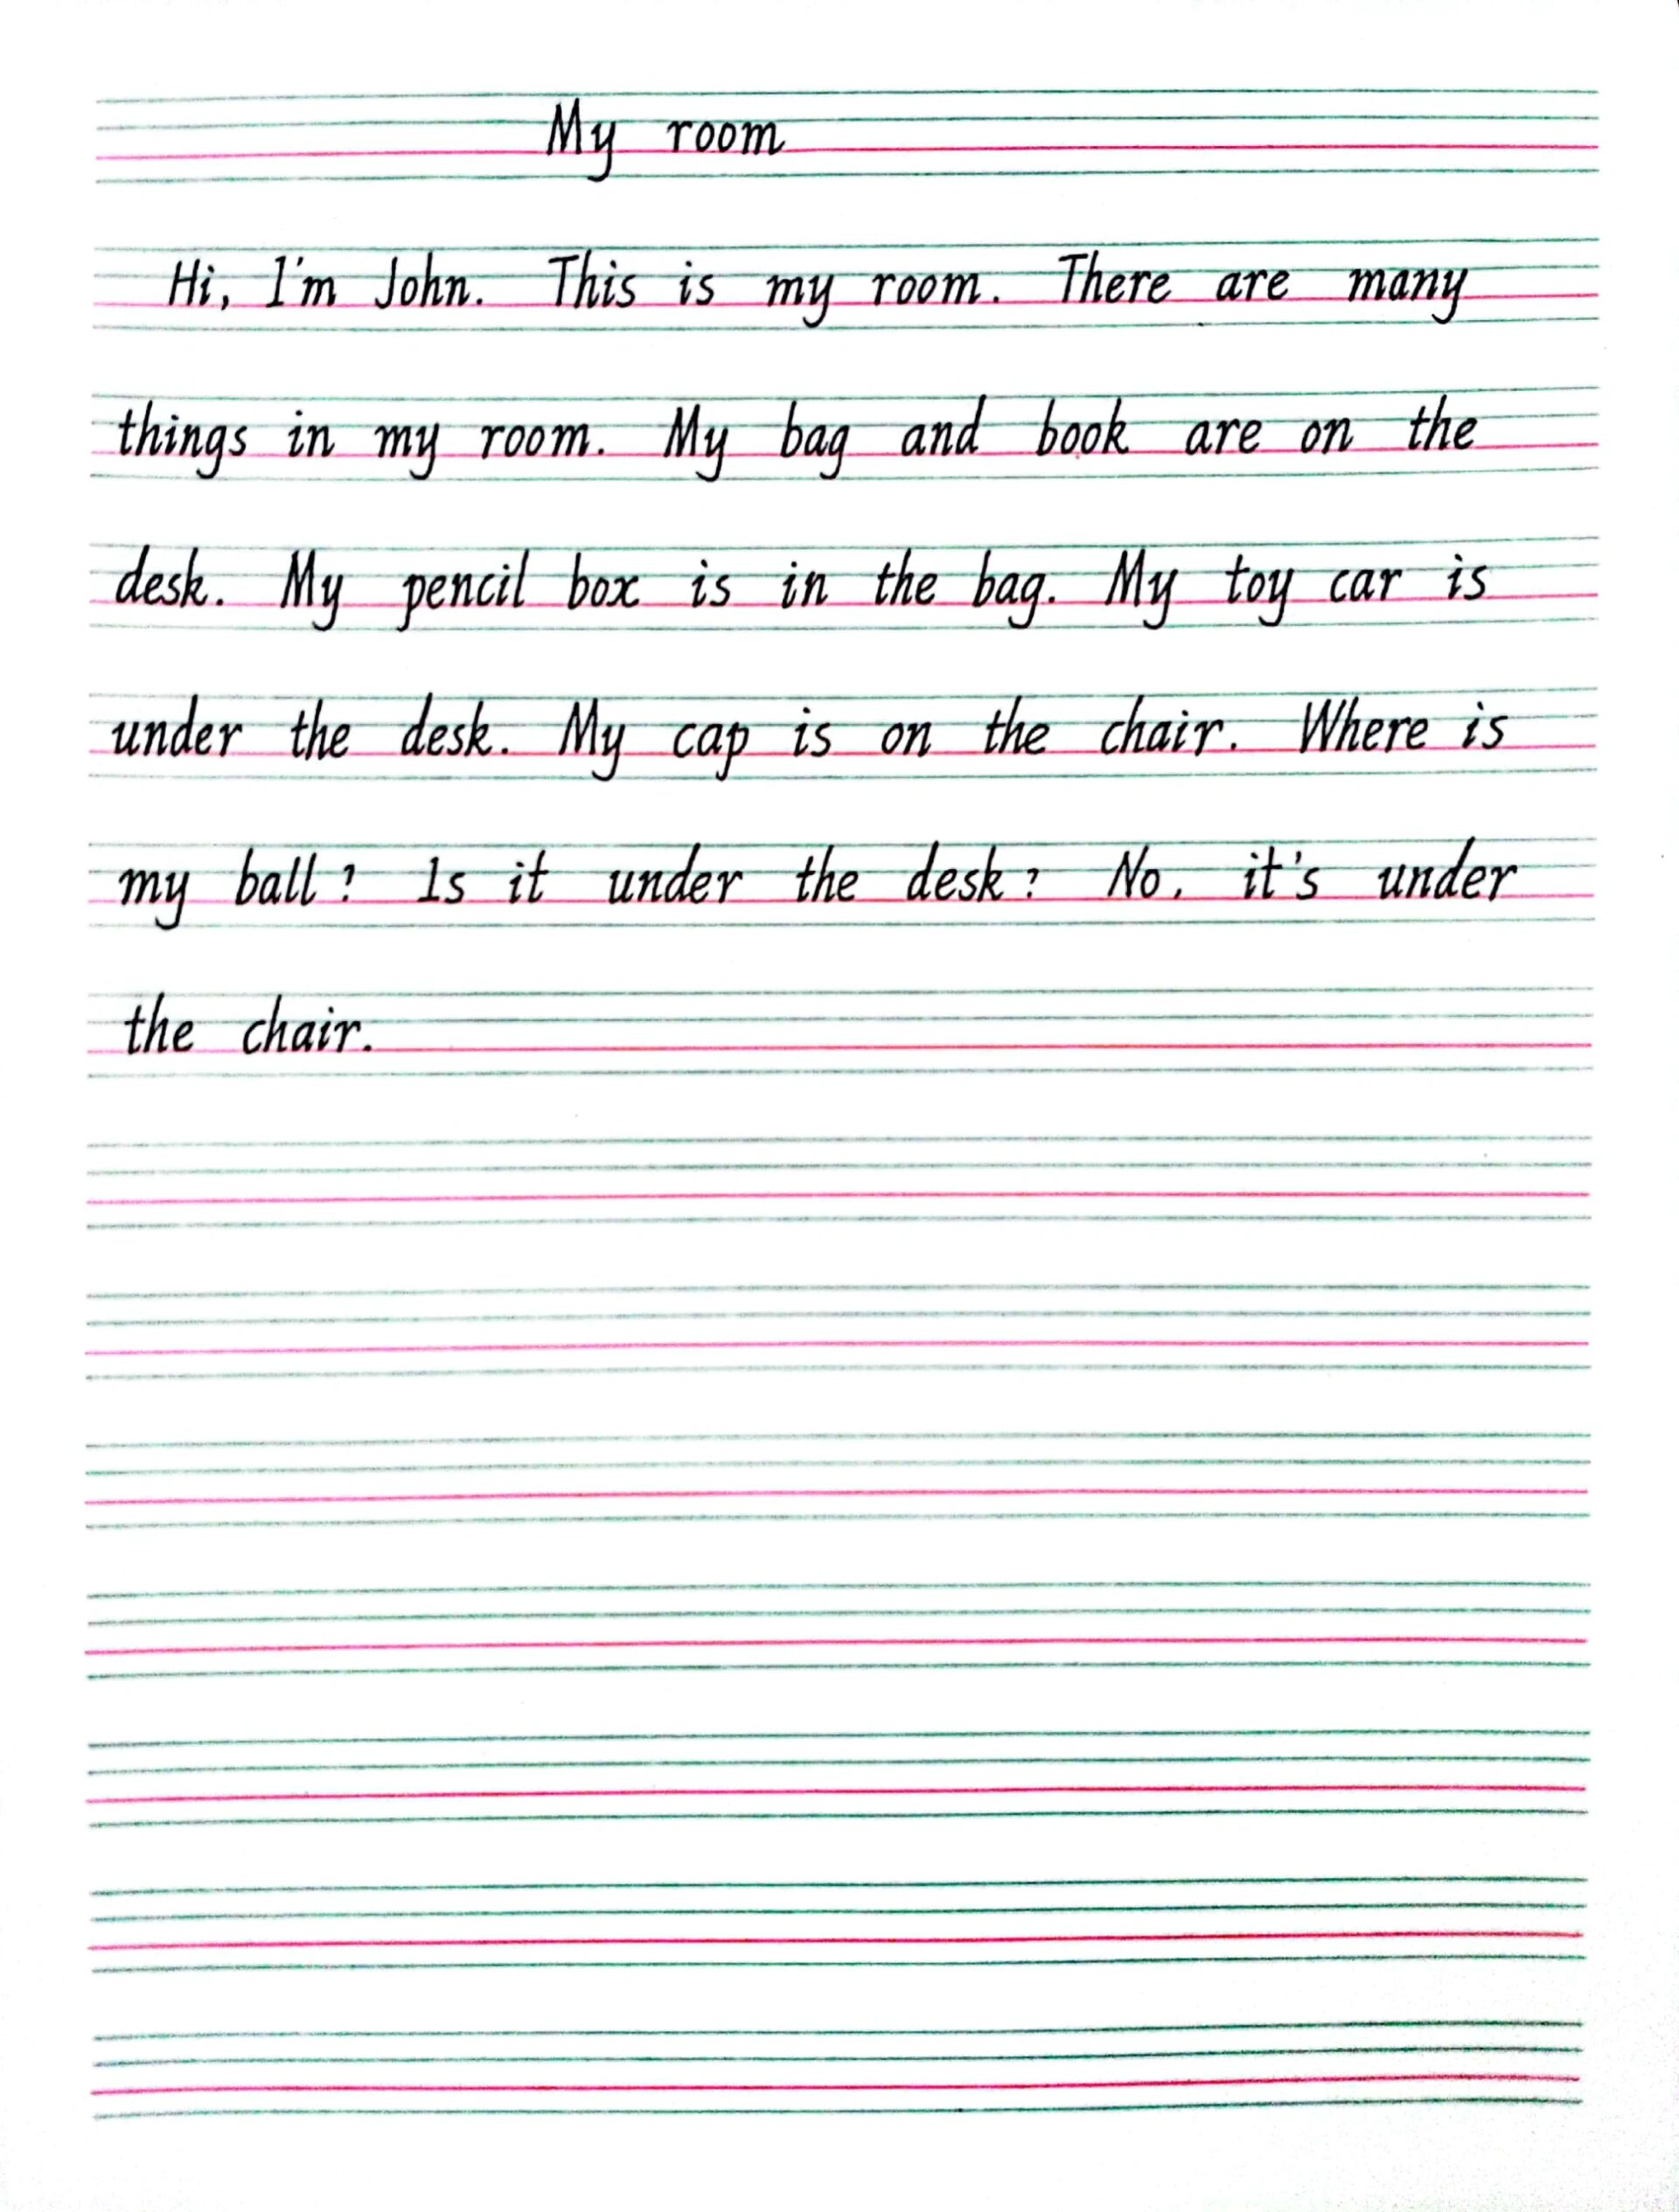 My room
Hi, I'm John. This is my room. There are many
things in my room. My bag and book are on the
desk. My pencil box is in the bag. My toy car is
under the desk. My cap is on the chair. Where is
my ball? Is it under the desk? No, it's under
the chair.